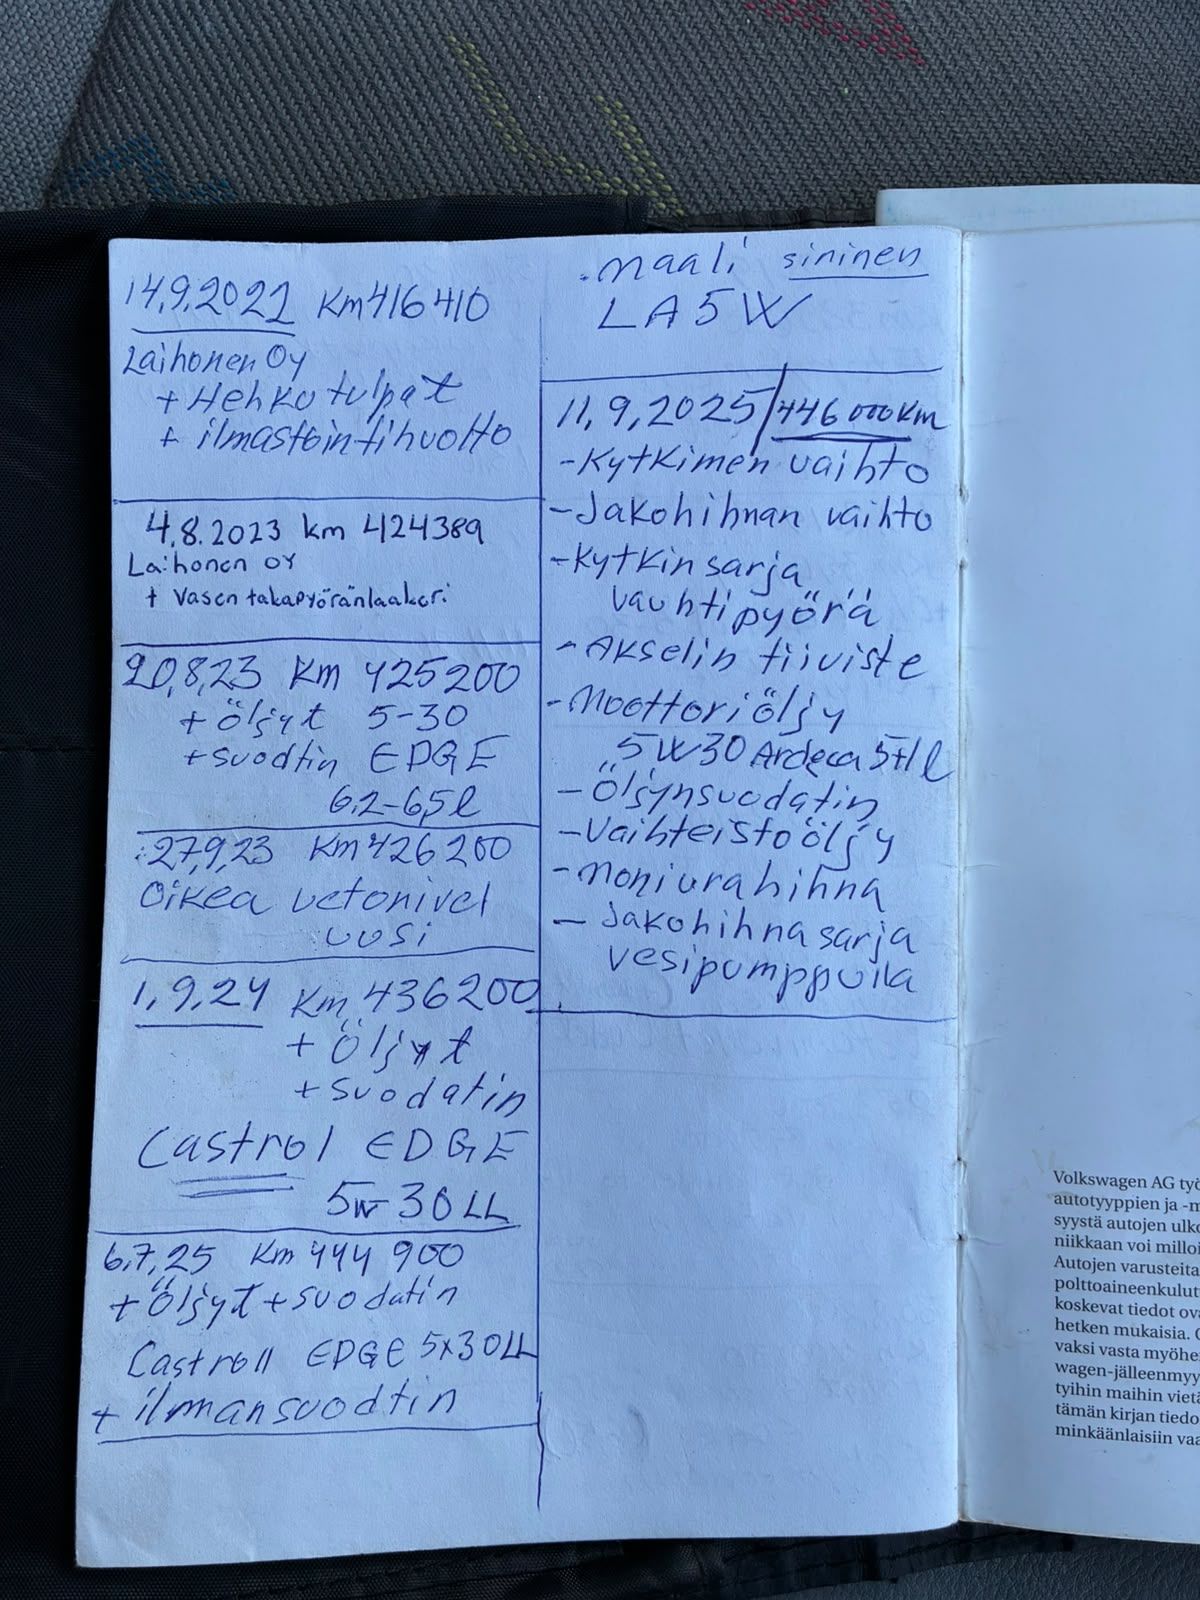 14.9.2022 Km 416410
Laihonen Oy
+ Hehkutulpat
+ ilmastointihuolto
4.8.2023 km 424389
Laihonen OY
+ Vasen takapyöränlaakeri
20,8,23 Km 425200
+ Öljyt 5-30
+suodtin EDGE
6,2-6,5l
27,9,23 Km 426200
Oikea vetonivel
uusi
1,9,24 Km 436200
+ Öljyt
+ suodatin
Castrol EDGE
5W-30LL
6,7,25 Km 444 900
+ Öljyt + suodatin
Castroll EDGE 5x30LL
+ ilmansuodtin
maali sininen
LA5W
11,9,2025/446000Km
-Kytkimen vaihto
-Jakohihnan vaihto
-Kytkinsarja
vauhtipyörä
-Akselin tiiviste
-Moottoriöljy
5W30 Ardeca 5+1l
-Öljynsuodatin
-Vaihteistoöljy
-Moniurahihna
- Jakohihnasarja
vesipumppulla
Volkswagen AG työ
autotyyppien ja -m
syystä autojen ulko
niikkaan voi milloi
Autojen varusteita
polttoaineenkulut
koskevat tiedot ova
hetken mukaisia.
vaksi vasta myöhe
wagen-jälleenmyy
tyihin maihin vietä
tämän kirjan tiedo
minkäänlaisiin vaa